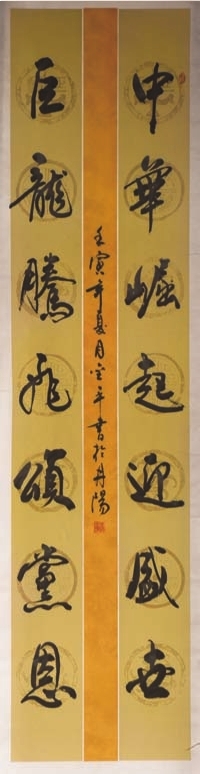 中華崛起迎盛世
巨龍騰飛頌黨恩
壬寅年夏月宝平書於丹陽